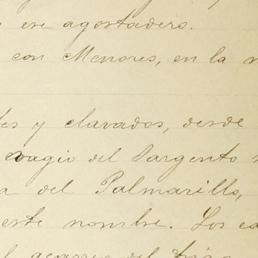 e ese agostadero.
con Menores, en la
es y clavados, desde
del Sargento
a del Palmarillo,
este nombre. Los
del